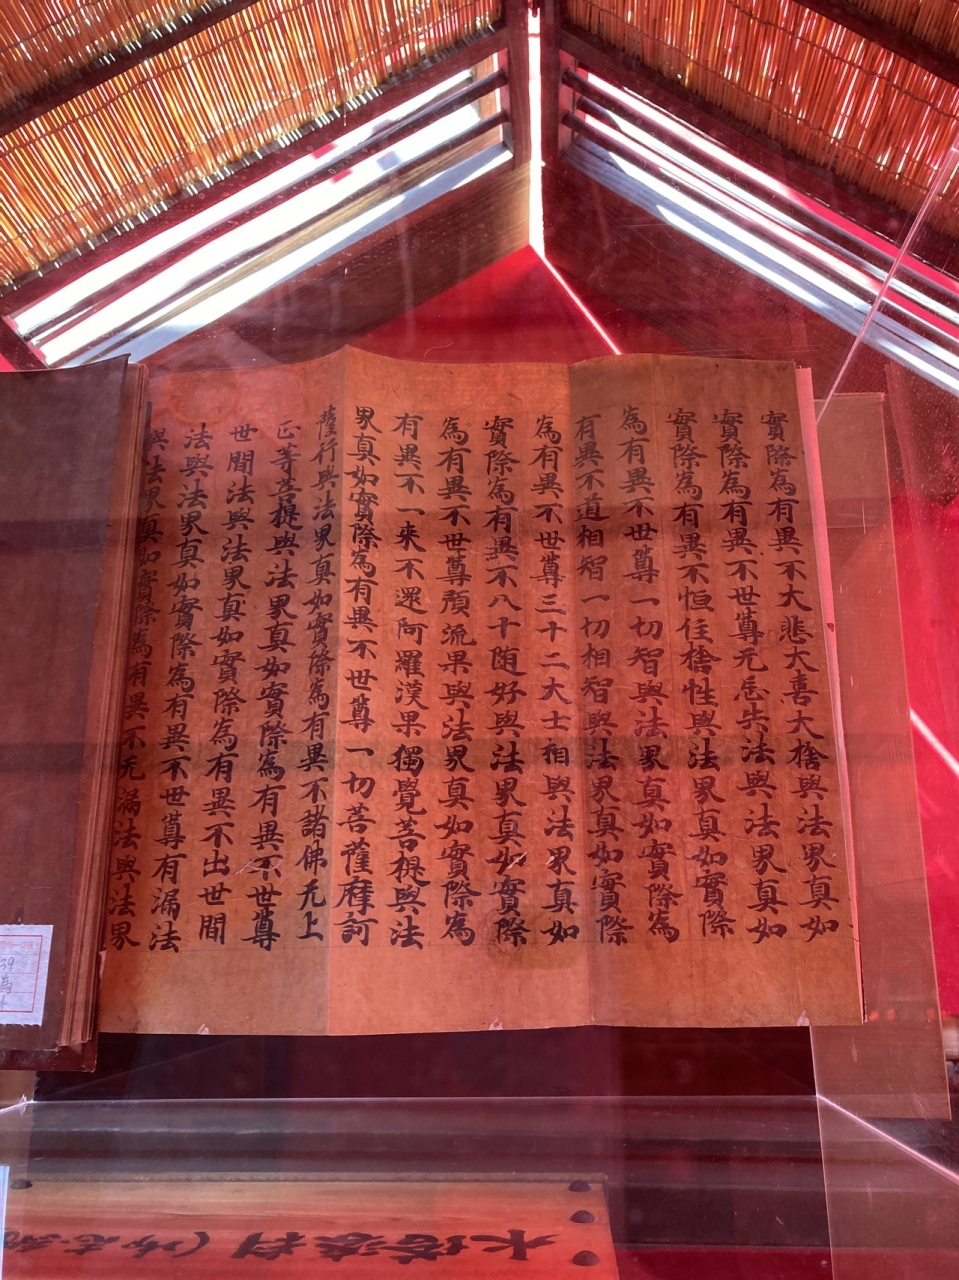 實際為有異不大悲大喜大捨與法界真如
實際為有異不世尊无忘失法與法界真如
實際為有異不恒住捨性與法界真如實際
為有異不世尊一切智與法界真如實際為
有異不道相智一切相智與法界真如實際
為有異不世尊三十二大士相與法界真如
實際為有異不八十随好與法界真如實際
為有異不世尊預流果與法界真如實際為
有異不一来不還阿羅漢果獨覺菩提與法
界真如實際為有異不世尊一切菩薩摩訶
薩行與法界真如實際為有異不諸佛无上
正等菩提與法界真如實際為有異不世尊
世間法與法界真如實際為有異不出世間
法與法界真如實際為有異不世尊有漏法
與法界真如實際為有異不无漏法與法界
39
為
木塔婆料(